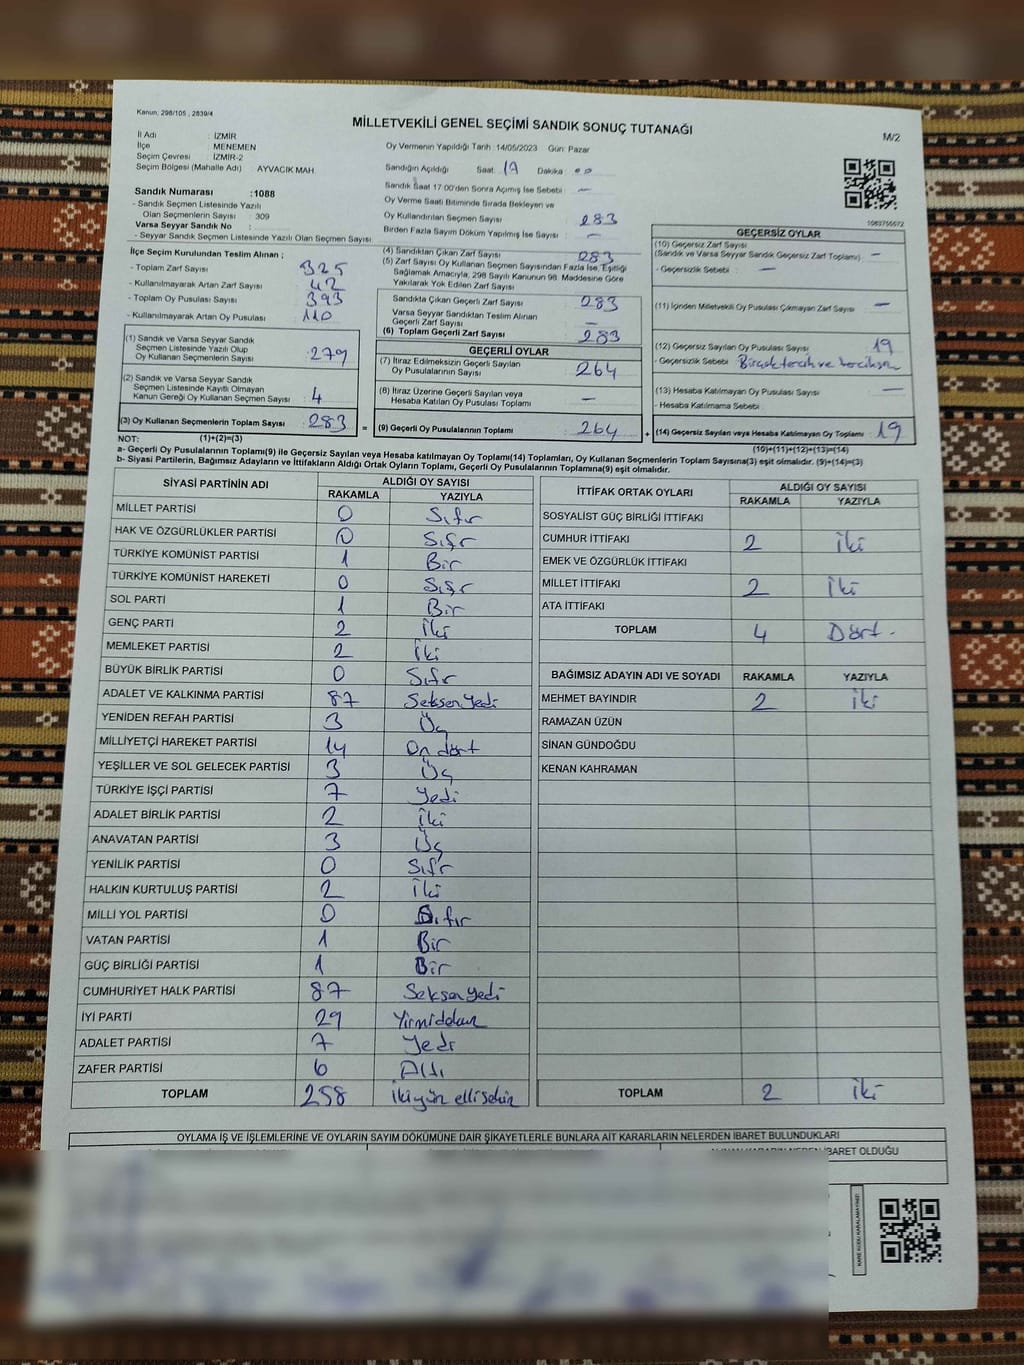 Kanun: 298/105 , 2839/4
MİLLETVEKİLİ GENEL SEÇİMİ SANDIK SONUÇ TUTANAĞI
M/2
İl Adı : İZMİR
İlçe : MENEMEN
Seçim Çevresi : İZMİR-2
Seçim Bölgesi (Mahalle Adı) AYVACIK MAH.
Oy Vermenin Yapıldığı Tarih :14/05/2023 Gün: Pazar
Sandığın Açıldığı Saat: 17 Dakika :
Sandık Saat 17:00'den Sonra Açılmış İse Sebebi : —
Sandık Numarası :1088
- Sandık Seçmen Listesinde Yazılı
Olan Seçmenlerin Sayısı : 309
Varsa Seyyar Sandık No :
- Seyyar Sandık Seçmen Listesinde Yazılı Olan Seçmen Sayısı:
Oy Verme Saati Bitiminde Sırada Bekleyen ve
Oy Kullandırılan Seçmen Sayısı : 283
Birden Fazla Sayım Döküm Yapılmış İse Sayısı : —
İlçe Seçim Kurulundan Teslim Alınan ;
- Toplam Zarf Sayısı : 325
- Kullanılmayarak Artan Zarf Sayısı : 42
- Toplam Oy Pusulası Sayısı : 393
- Kullanılmayarak Artan Oy Pusulası : 110
(1) Sandık ve Varsa Seyyar Sandık
Seçmen Listesinde Yazılı Olup
Oy Kullanan Seçmenlerin Sayısı : 279
(2) Sandık ve Varsa Seyyar Sandık
Seçmen Listesinde Kayıtlı Olmayan
Kanun Gereği Oy Kullanan Seçmen Sayısı : 4
(3) Oy Kullanan Seçmenlerin Toplam Sayısı : 283
(4) Sandıktan Çıkan Zarf Sayısı : 283
(5) Zarf Sayısı Oy Kullanan Seçmen Sayısından Fazla İse, Eşitliği
Sağlamak Amacıyla, 298 Sayılı Kanunun 98. Maddesine Göre
Yakılarak Yok Edilen Zarf Sayısı :
Sandıkta Çıkan Geçerli Zarf Sayısı : 283
Varsa Seyyar Sandıktan Teslim Alınan
Geçerli Zarf Sayısı : —
(6) Toplam Geçerli Zarf Sayısı : 283
GEÇERLİ OYLAR
(7) İtiraz Edilmeksizin Geçerli Sayılan
Oy Pusulalarının Sayısı : 264
(8) İtiraz Üzerine Geçerli Sayılan veya
Hesaba Katılan Oy Pusulası Toplamı : —
= (9) Geçerli Oy Pusulalarının Toplamı : 264
1082755572
GEÇERSİZ OYLAR
(10) Geçersiz Zarf Sayısı
(Sandık ve Varsa Seyyar Sandık Geçersiz Zarf Toplamı) : —
- Geçersizlik Sebebi : —
(11) İçinden Milletvekili Oy Pusulası Çıkmayan Zarf Sayısı : —
(12) Geçersiz Sayılan Oy Pusulası Sayısı : 19
- Geçersizlik Sebebi :
(13) Hesaba Katılmayan Oy Pusulası Sayısı : —
- Hesaba Katılmama Sebebi :
+ (14) Geçersiz Sayılan veya Hesaba Katılmayan Oy Toplamı : 19
NOT: (1)+(2)=(3)
(10)+(11)+(12)+(13)=(14)
a- Geçerli Oy Pusulalarının Toplamı(9) ile Geçersiz Sayılan veya Hesaba katılmayan Oy Toplamı(14) Toplamları, Oy Kullanan Seçmenlerin Toplam Sayısına(3) eşit olmalıdır. (9)+(14)=(3)
b- Siyasi Partilerin, Bağımsız Adayların ve İttifakların Aldığı Ortak Oyların Toplamı, Geçerli Oy Pusulalarının Toplamına(9) eşit olmalıdır.
SİYASİ PARTİNİN ADI ALDIĞI OY SAYISI
RAKAMLA YAZIYLA
MİLLET PARTİSİ 0 Sıfır
HAK VE ÖZGÜRLÜKLER PARTİSİ 0 Sıfır
TÜRKİYE KOMÜNİST PARTİSİ 1 Bir
TÜRKİYE KOMÜNİST HAREKETİ 0 Sıfır
SOL PARTİ 1 Bir
GENÇ PARTİ 2 İki
MEMLEKET PARTİSİ 2 İki
BÜYÜK BİRLİK PARTİSİ 0 Sıfır
ADALET VE KALKINMA PARTİSİ 87 Seksen yedi
YENİDEN REFAH PARTİSİ 3 Üç
MİLLİYETÇİ HAREKET PARTİSİ 14 On dört
YEŞİLLER VE SOL GELECEK PARTİSİ 3 Üç
TÜRKİYE İŞÇİ PARTİSİ 7 Yedi
ADALET BİRLİK PARTİSİ 2 İki
ANAVATAN PARTİSİ 3 Üç
YENİLİK PARTİSİ 0 Sıfır
HALKIN KURTULUŞ PARTİSİ 2 İki
MİLLİ YOL PARTİSİ 0 Sıfır
VATAN PARTİSİ 1 Bir
GÜÇ BİRLİĞİ PARTİSİ 1 Bir
CUMHURİYET HALK PARTİSİ 87 Seksen yedi
İYİ PARTİ 29 Yirmidokuz
ADALET PARTİSİ 7 Yedi
ZAFER PARTİSİ 6 Altı
TOPLAM 258 İkiyüz ellisekiz
İTTİFAK ORTAK OYLARI ALDIĞI OY SAYISI
RAKAMLA YAZIYLA
SOSYALİST GÜÇ BİRLİĞİ İTTİFAKI
CUMHUR İTTİFAKI 2 İki
EMEK VE ÖZGÜRLÜK İTTİFAKI
MİLLET İTTİFAKI 2 İki
ATA İTTİFAKI
TOPLAM 4 Dört.
BAĞIMSIZ ADAYIN ADI VE SOYADI RAKAMLA YAZIYLA
MEHMET BAYINDIR 2 İki
RAMAZAN ÜZÜN
SİNAN GÜNDOĞDU
KENAN KAHRAMAN
TOPLAM 2 İki
OYLAMA İŞ VE İŞLEMLERİNE VE OYLARIN SAYIM DÖKÜMÜNE DAİR ŞİKAYETLERLE BUNLARA AİT KARARLARIN NELERDEN İBARET BULUNDUKLARI
İBARET OLDUĞU
KARE KODU KARALAMAYINIZ!